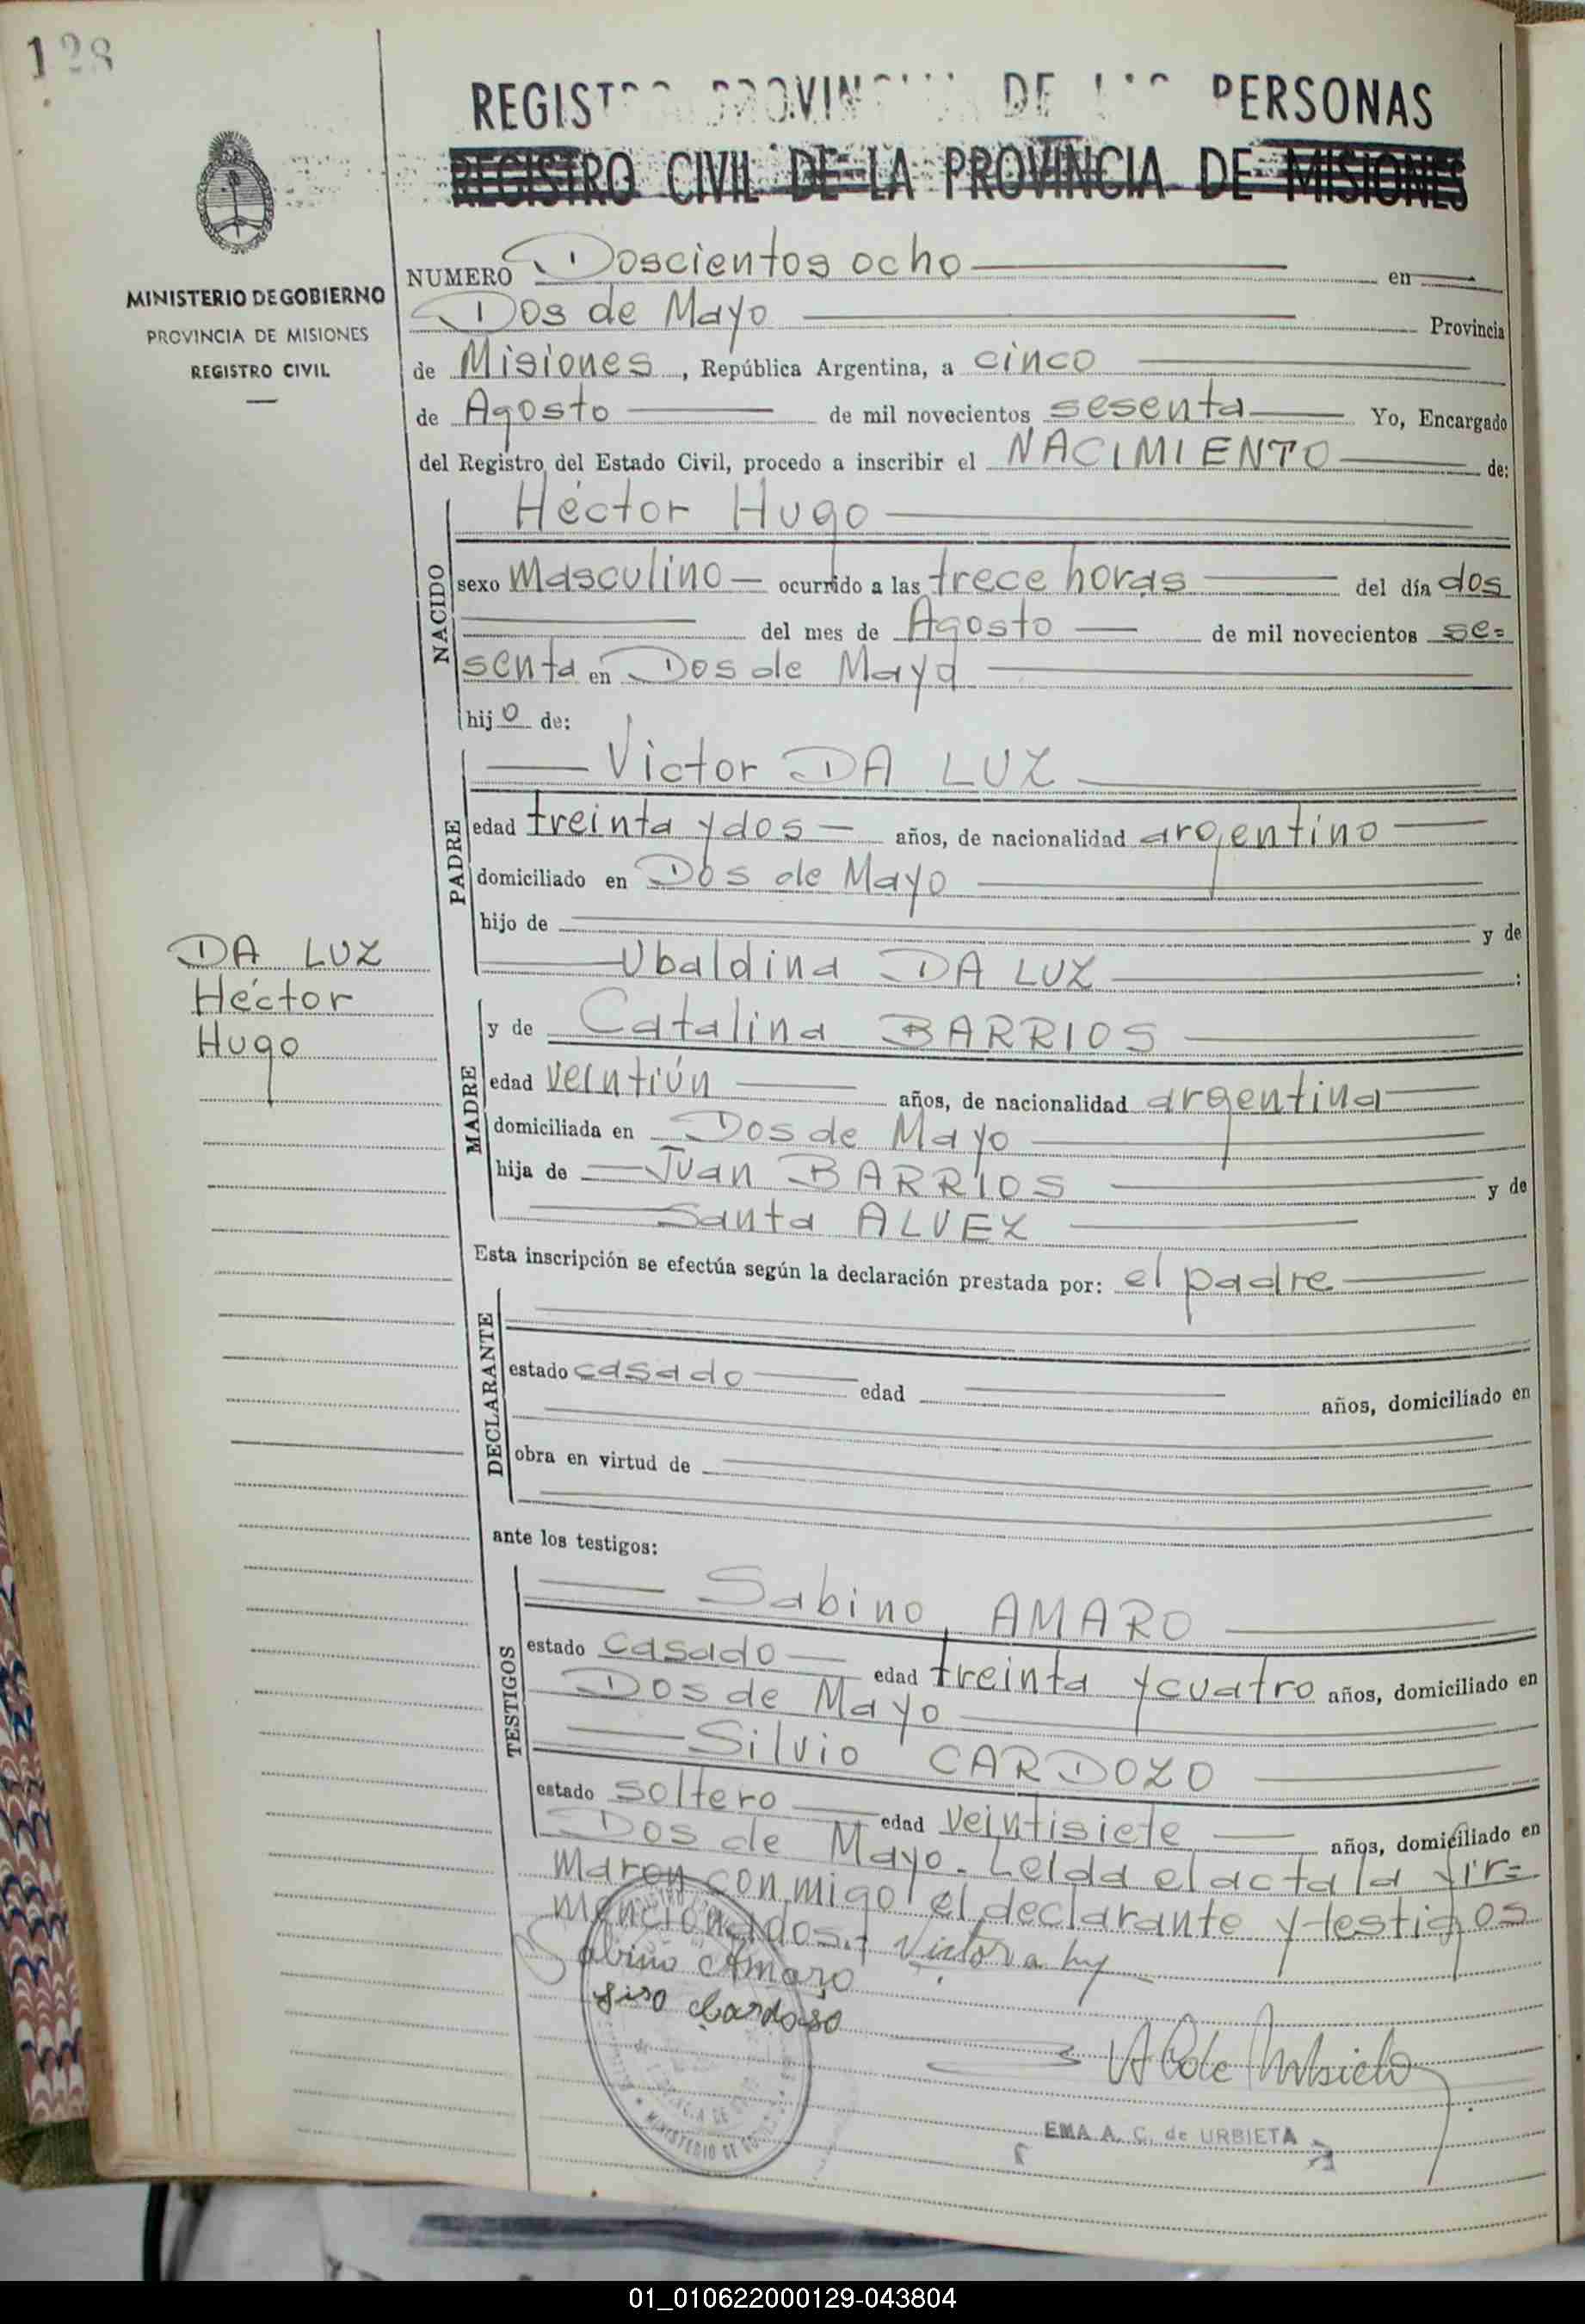 128
REGISTRO PROVINCIAL DE LAS PERSONAS
REGISTRO CIVIL DE LA PROVINCIA DE MISIONES
MINISTERIO DE GOBIERNO
PROVINCIA DE MISIONES
REGISTRO CIVIL
NUMERO Doscientos ocho en
Dos de Mayo Provincia
de Misiones, República Argentina, a cinco
de Agosto de mil novecientos sesenta Yo, Encargado
del Registro del Estado Civil, procedo a inscribir el NACIMIENTO de:
NACIDO
Héctor Hugo
sexo masculino ocurrido a las trece horas del día dos
del mes de Agosto de mil novecientos se=
senta en Dos de Mayo
hijo de:
PADRE
Victor DA LUZ
edad treinta y dos años, de nacionalidad argentino
domiciliado en Dos de Mayo
hijo de y de
Ubaldina DA LUZ :
DA LUZ
Héctor
Hugo
MADRE
y de Catalina BARRIOS
edad veintiún años, de nacionalidad argentina
domiciliada en Dos de Mayo
hija de Juan BARRIOS y de
Santa ALVEZ
Esta inscripción se efectúa según la declaración prestada por: el padre
DECLARANTE
estado casado edad años, domiciliado en
obra en virtud de
ante los testigos:
TESTIGOS
Sabino AMARO
estado casado edad treinta y cuatro años, domiciliado en
Dos de Mayo
Silvio CARDOZO
estado soltero edad veintisiete años, domiciliado en
Dos de Mayo. Leida el acta la fir=
maron conmigo el declarante y testigos
mencionados.-
Victor da luz
Sabino Amaro
Cardoso
EMA A. C. de URBIETA
MINISTERIO DE
01_010622000129-043804